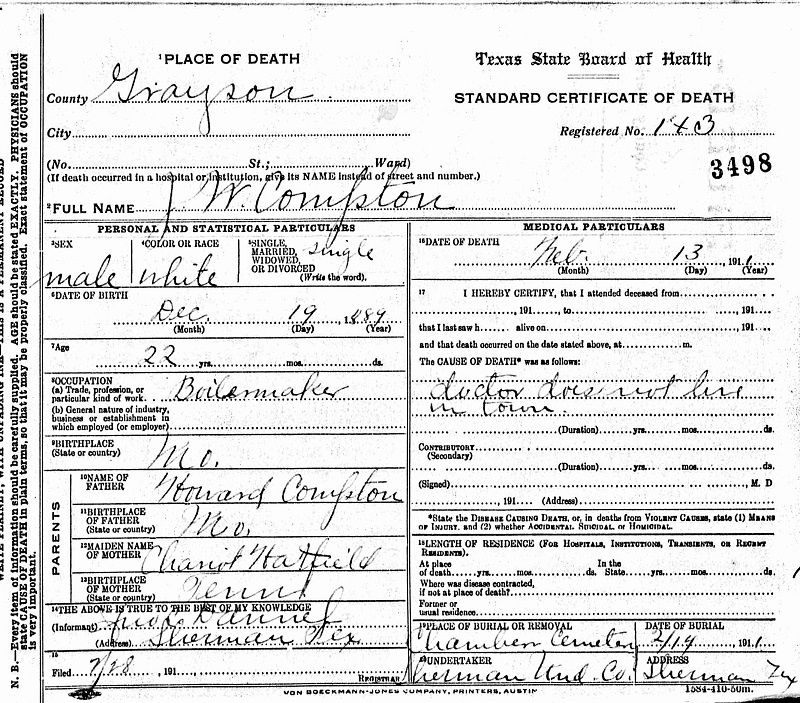 N. B.—Every item of information should be carefully supplied. AGE should be stated EXACTLY. PHYSICIANS should
state CAUSE OF DEATH in plain terms, so that it may be properly classified. Exact statement of OCCUPATION
is very important.
¹PLACE OF DEATH
County Grayson
City
(No. St.; Ward)
(If death occurred in a hospital or institution, give its NAME instead of street and number.)
²FULL NAME J W. Compton
Texas State Board of Health
STANDARD CERTIFICATE OF DEATH
Registered No. 143
3498
PERSONAL AND STATISTICAL PARTICULARS
³SEX male
⁴COLOR OR RACE white
⁵SINGLE, MARRIED, WIDOWED, OR DIVORCED single
(Write the word).
⁶DATE OF BIRTH
Dec. 19 1889
(Month) (Day) (Year)
⁷Age
22 yrs. mos. ds.
⁸OCCUPATION
(a) Trade, profession, or
particular kind of work. Boilermaker
(b) General nature of industry,
business or establishment in
which employed (or employer)
⁹BIRTHPLACE
(State or country) Mo.
PARENTS
¹⁰NAME OF
FATHER Howard Compton
¹¹BIRTHPLACE
OF FATHER
(State or country) Mo.
¹²MAIDEN NAME
OF MOTHER Hatfield
¹³BIRTHPLACE
OF MOTHER
(State or country) Tenn
¹⁴THE ABOVE IS TRUE TO THE BEST OF MY KNOWLEDGE
(Informant)
(Address) Sherman Tex
15
Filed 2/28 191 REGISTRAR
MEDICAL PARTICULARS
¹⁶DATE OF DEATH
Feb. 13 1911
(Month) (Day) (Year)
17 I HEREBY CERTIFY, that I attended deceased from
, 191 , to , 191
that I last saw h alive on , 191
and that death occurred on the date stated above, at m.
The CAUSE OF DEATH* was as follows:
doctor does not live
in town
(Duration) yrs. mos. ds.
CONTRIBUTORY
(Secondary)
(Duration) yrs. mos. ds.
(Signed) M. D
, 191 (Address)
*State the DISEASE CAUSING DEATH, or, in deaths from VIOLENT CAUSES, state (1) MEANS
OF INJURY, and (2) whether ACCIDENTAL SUICIDAL OR HOMICIDAL.
¹⁸LENGTH OF RESIDENCE (FOR HOSPITALS, INSTITUTIONS, TRANSIENTS, OR RECENT
RESIDENTS).
At place of death yrs. mos. ds. In the State yrs. mos. ds.
Where was disease contracted,
if not at place of death?
Former or
usual residence
¹⁹PLACE OF BURIAL OR REMOVAL
Chambers Cemetery
DATE OF BURIAL
2/14 1911
²⁰UNDERTAKER
Sherman Und. Co.
ADDRESS
Sherman Tex
VON BOECKMANN-JONES COMPANY, PRINTERS, AUSTIN
1584-410-50m.